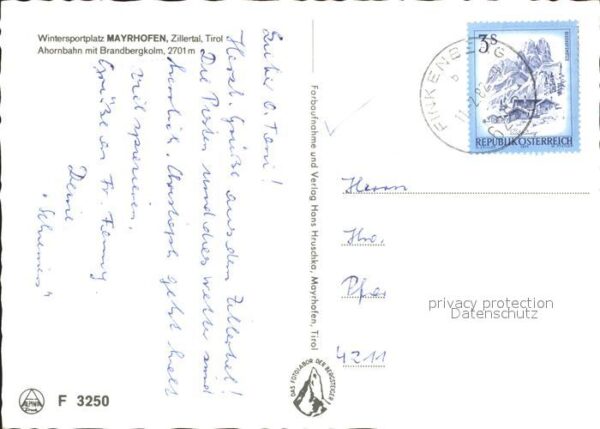 Wintersportplatz MAYRHOFEN, Zillertal, Tirol
Ahornbahn mit Brandbergkolm, 2701 m
Herzl. Grüße aus dem Zillertal!
Die Pisten und das Wetter sind
herrlich. Christoph geht heut
viel spazieren.
Grüße an Fr. Fanny.
Deine
F 3250
Farbaufnahme und Verlag Hans Hruschka, Mayrhofen, Tirol
DAS FOTOLABOR DER BERGSTEIGER
FINKENBERG
3 S
REPUBLIK ÖSTERREICH
Herrn
4211
privacy protection
Datenschutz